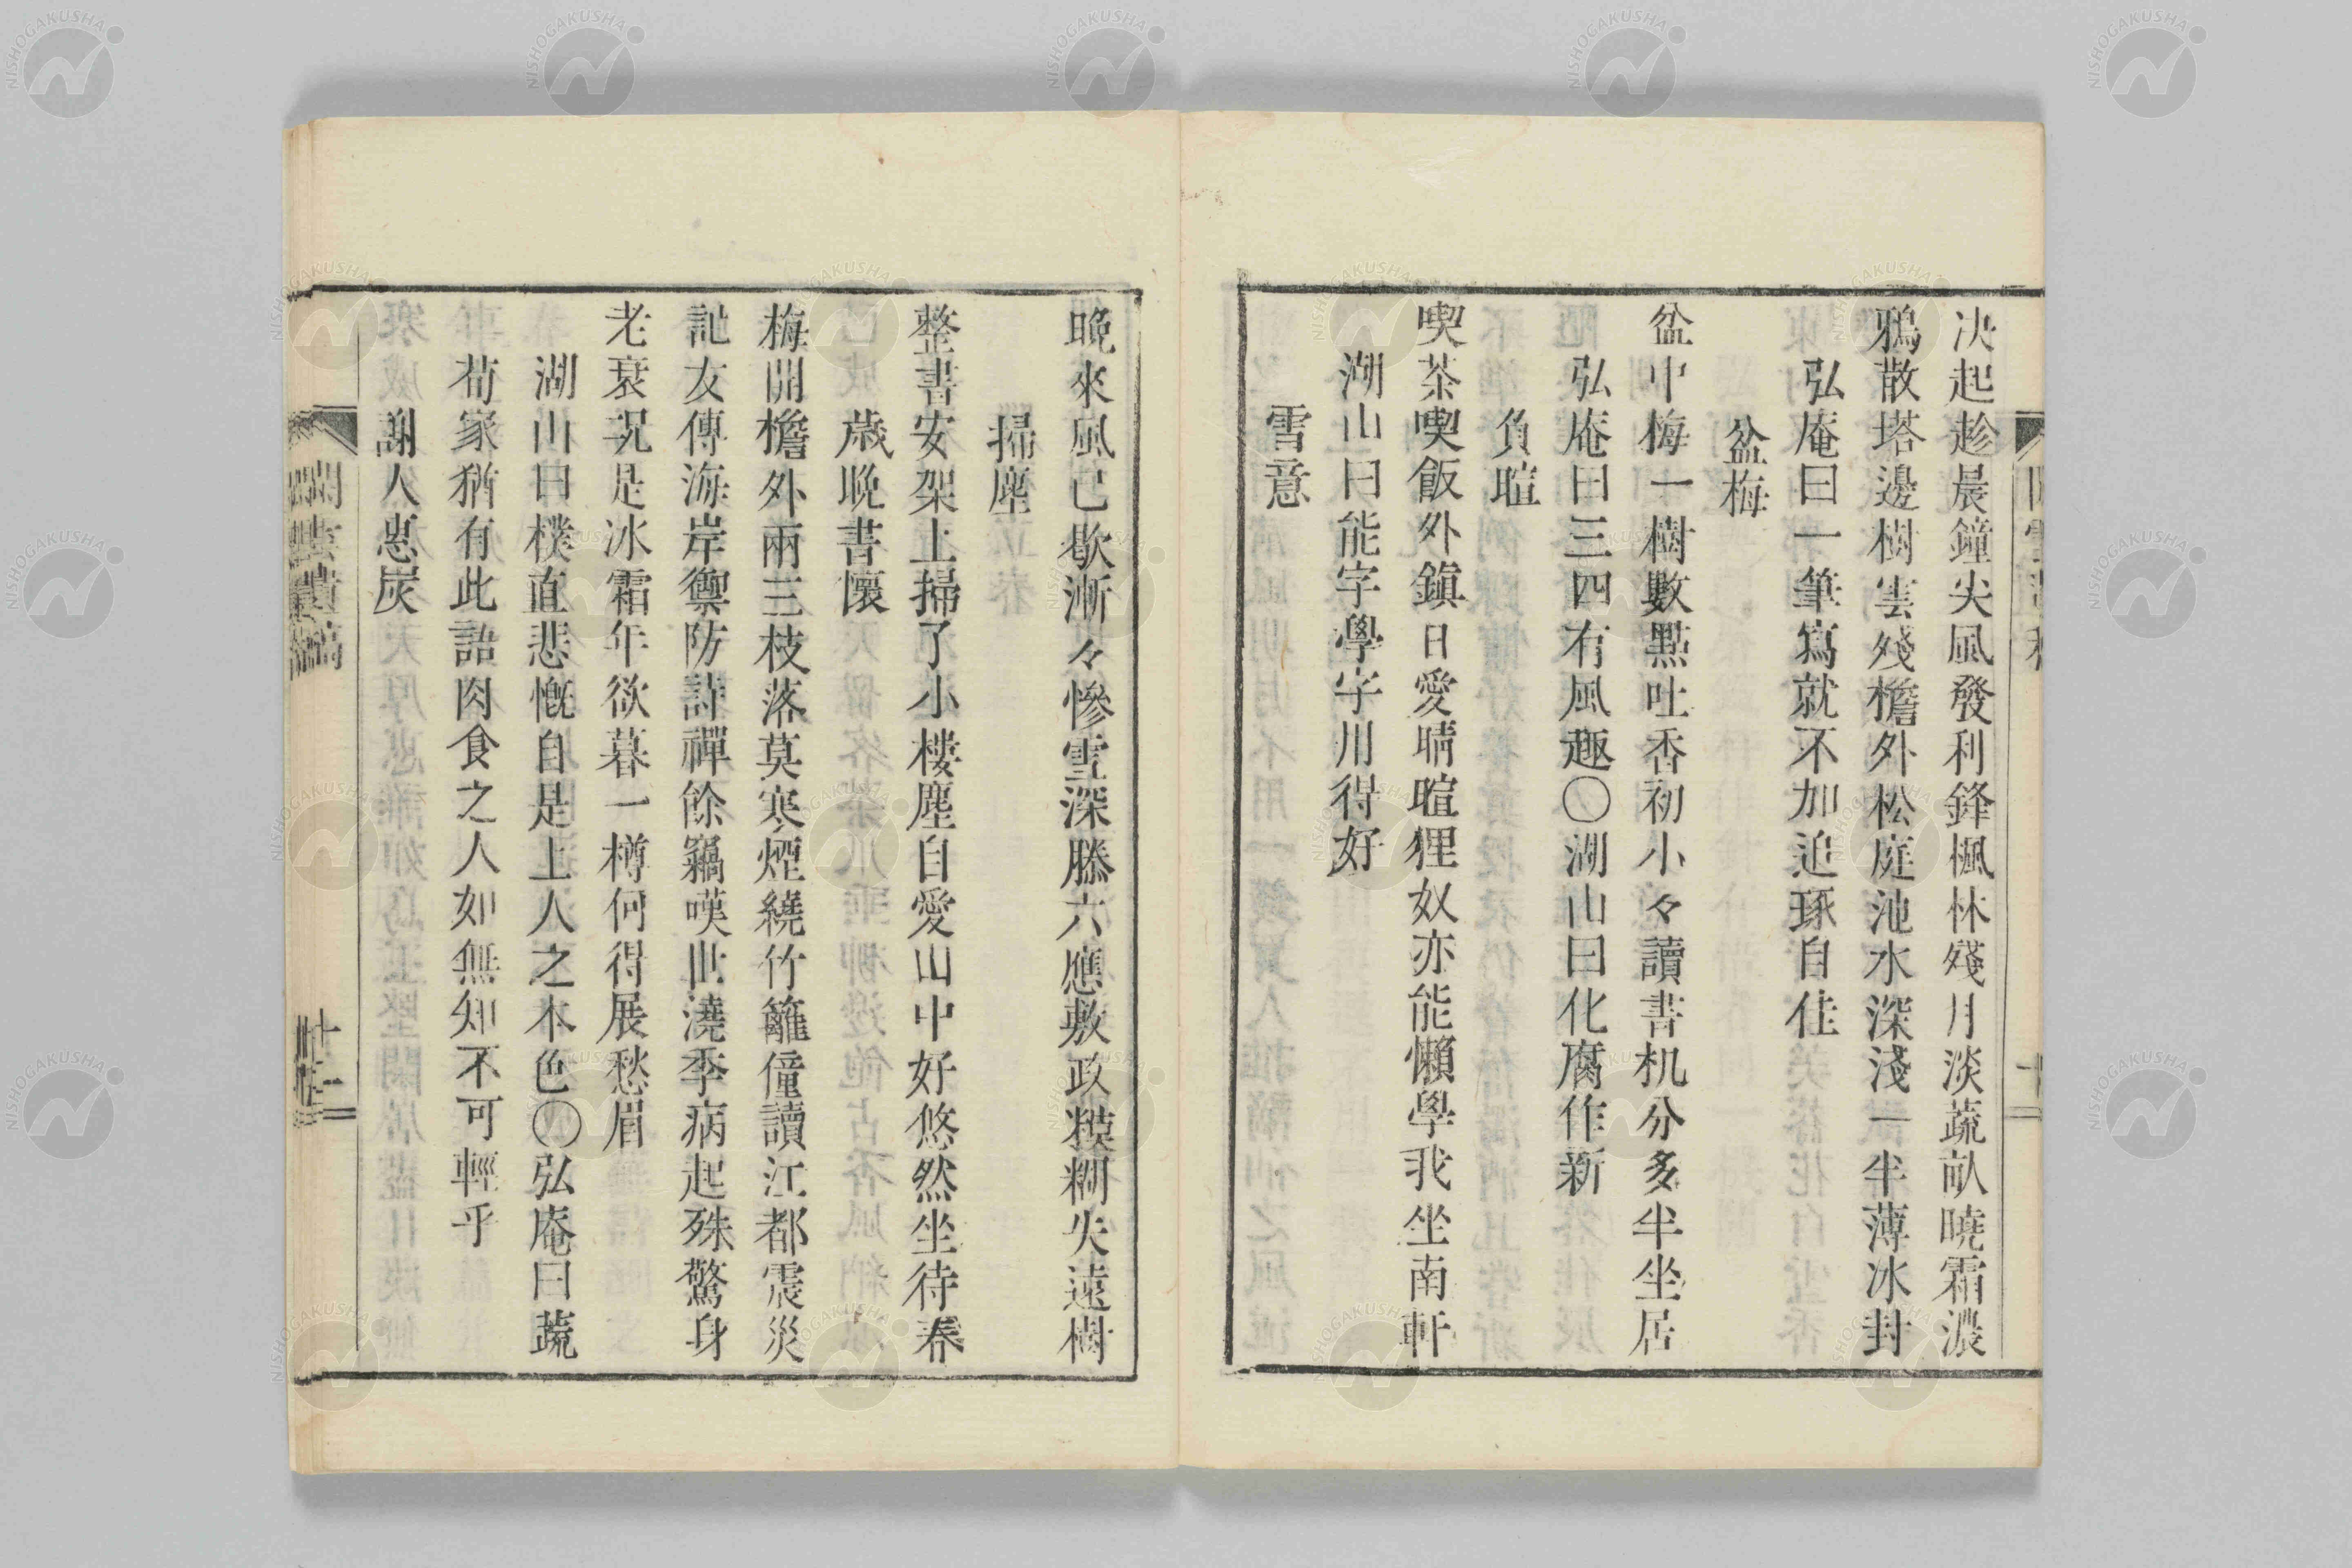 决起趁晨鐘尖風發利鋒楓林殘月淡蔬畝曉霜濃
鴉散塔邊樹雲殘檐外松庭池水深淺一半薄冰封
弘庵曰一筆寫就不加追琢自佳
盆梅
盆中梅一樹數點吐香初小々讀書机分多半坐居
弘庵曰三四有風趣〇湖山曰化腐作新
負暄
喫茶喫飯外鎮日愛晴暄狸奴亦能懶學我坐南軒
湖山曰能字學字用得好
雪意
晚來風已歇漸々慘雲深滕六應敷政糢糊失遠樹
掃塵
整書安架上掃了小樓塵自愛山中好悠然坐待春
歲晚書懷
梅開檐外兩三枝落莫寒煙繞竹籬僮讀江都震災
記友傳海岸禦防詩禪餘竊嘆世澆季病起殊驚身
老衰況是冰霜年欲暮一樽何得展愁眉
湖山曰樸直悲慨自是上人之本色〇弘庵曰蔬
荀家猶有此語肉食之人如無知不可輕乎
謝人惠炭
閒雲遺稿
NISHOGAKUSHA